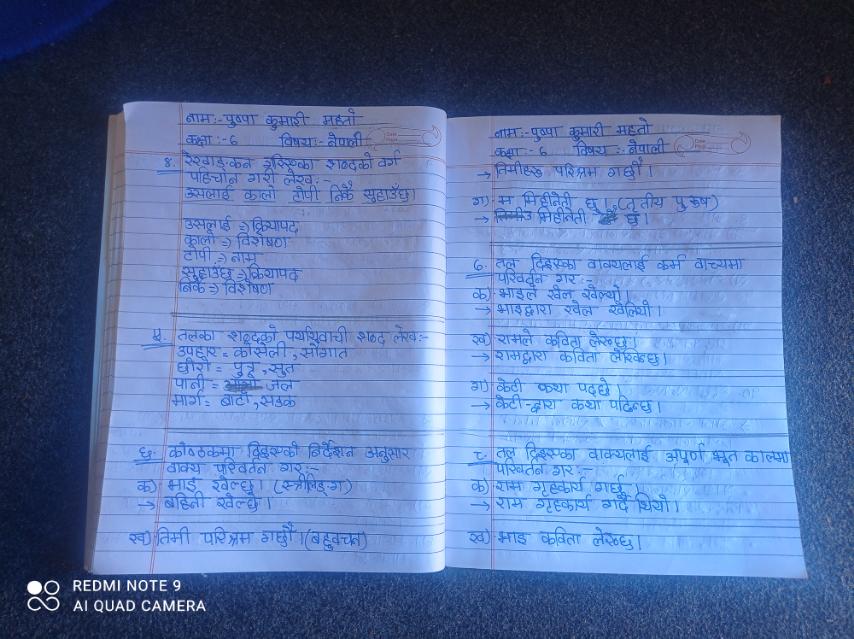 नामः-पुष्पा कुमारी महतो
कक्षाः-6 विषयः-नेपाली
४. रेखाङ्कन गरिएका शब्दको वर्ग
पहिचान गरी लेखः-
उसलाई कालो टोपी निकै सुहाउँछ।
उसलाई ⇒ क्रियापद
कालो ⇒ विशेषण
टोपी ⇒ नाम
सुहाउँछ ⇒ क्रियापद
निकै ⇒ विशेषण
५. तलका शब्दको पर्यायवाची शब्द लेखः-
उपहार = कोसेली, सौगात
छोरो = पुत्र, सुत
पानी = जल
मार्ग = बाटो, सडक
६. कोष्ठकमा दिइएको निर्देशन अनुसार
वाक्य परिवर्तन गरः-
क) भाइ खेल्छ। (स्त्रीलिङ्ग)
→ बहिनी खेल्छे।
ख) तिमी परिश्रम गर्छौ। (बहुवचन)
नामः-पुष्पा कुमारी महतो
कक्षाः-6 विषयः-नेपाली
→ तिमीहरू परिश्रम गर्छौ।
ग) म मिहीनेती छु। (तृतीय पुरुष)
→ मिहीनेती छ।
७. तल दिइएका वाक्यलाई कर्म वाच्यमा
परिवर्तन गरः-
क) भाइले खेल खेल्यो।
→ भाइद्वारा खेल खेलियो।
ख) रामले कविता लेख्छ।
→ रामद्वारा कविता लेखिन्छ।
ग) केटी कथा पढ्छे।
→ केटी-द्वारा कथा पढिन्छ।
८. तल दिइएका वाक्यलाई अपूर्ण भूत कालमा
परिवर्तन गरः-
क) राम गृहकार्य गर्छ।
→ राम गृहकार्य गर्दै थियो।
ख) भाइ कविता लेख्छ।
REDMI NOTE 9
AI QUAD CAMERA